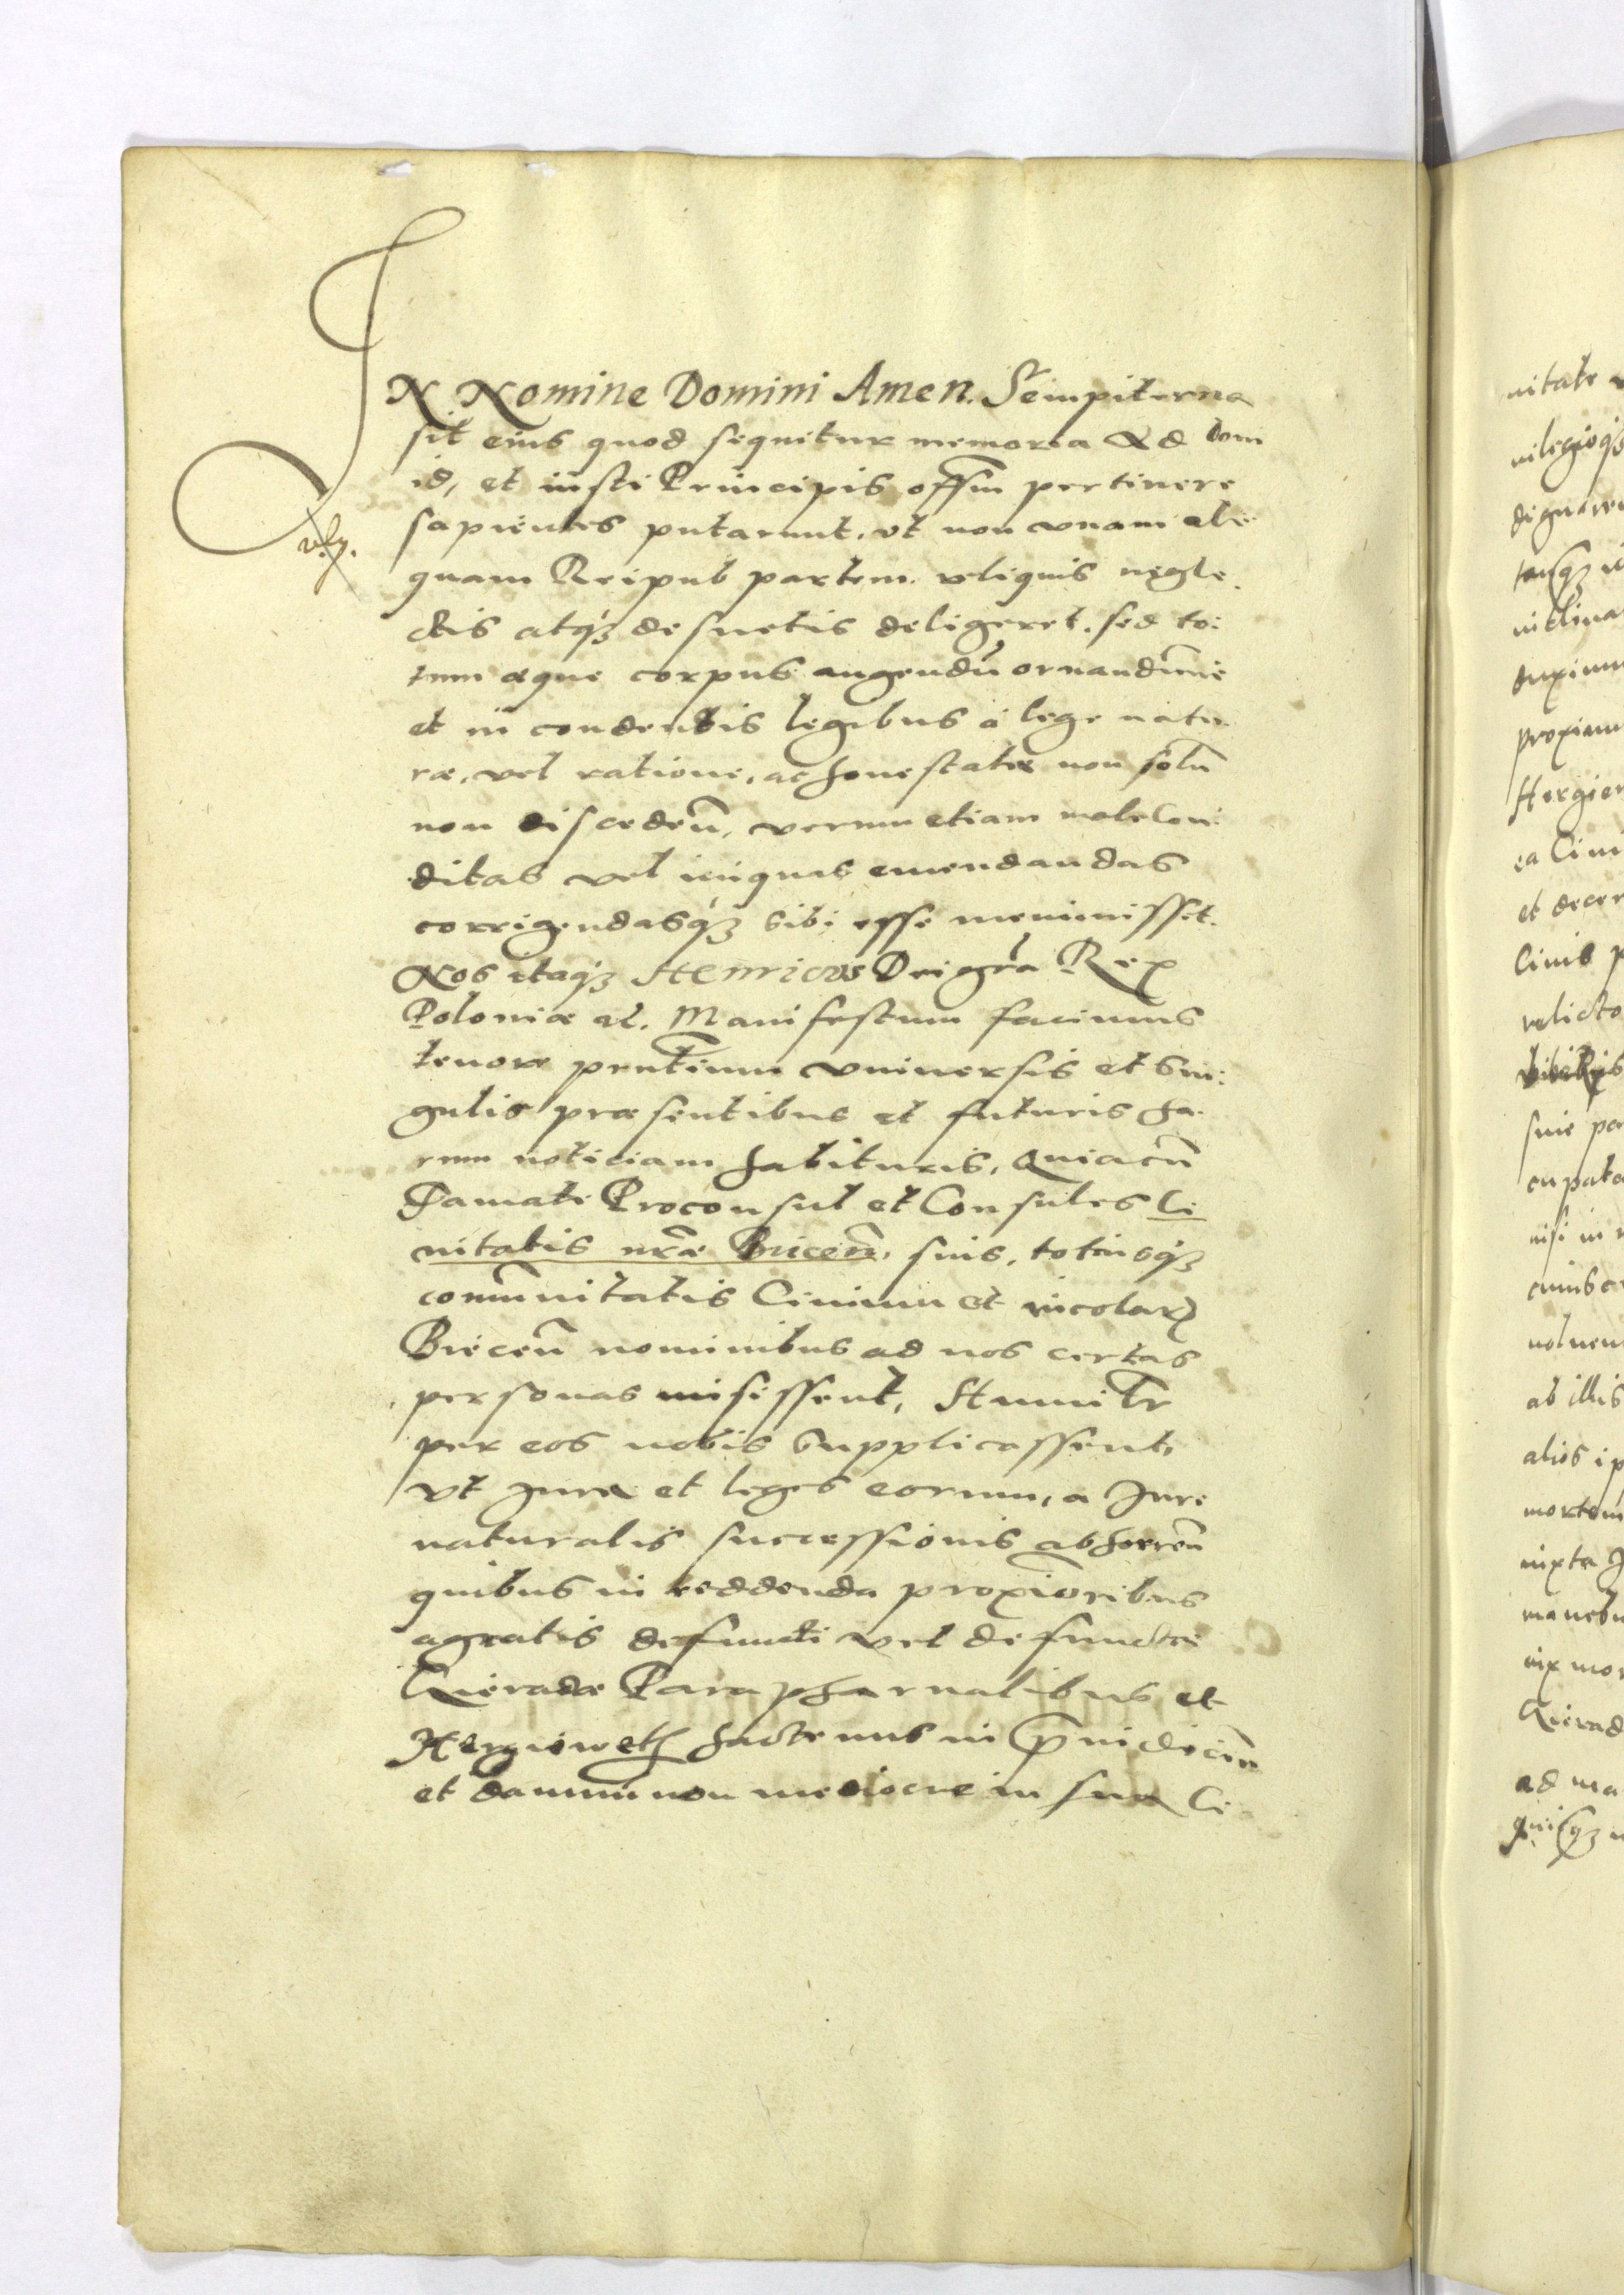 IN Nomine Domini Amen. Sempiterna
sit eius quod sequitur memoria Ad boni
id, et iusti Principis offm pertinere
sapientes putarunt, vt non vnam ali:
quam Reipub partem reliquis negle
ctis atq desuetis deligeret, sed to:
tum æque corpus augendū ornandūue
et in condendis legibus à lege natu
ræ, vel ratione, ac honestate non solū
non discedeñ, verum etiam male con:
ditas vel iniquas emendandas
corrigendasq sibi esse meminisset.
Nos itaq Henricus Dei grā Rex
Poloniæ et. Manifestum facimus
tenore pñtium vniuersis et sin:
gulis præsentibus et futuris ha.
rum noticiam habituris, Quia cū
Famati Proconsul et Consules Ci
uitatis nræ Biecen, suis, totiusq
comūnitatis Ciuium et incolar
Biecen nominibus ad nos certas
personas misissent, Humilr
per eos nobis supplicassent,
vt Jura et leges eorum, a Jure
naturalis successionis abhorreñ
quibus in reddenda proximioribus
agnatis defuncti vel defunctæ
Gierada Paraphernalibus et
Hergiweth hactenus in præiudiciū
et damnū non mediocre in sua Ci
uitate
dignare
inclina
duximu
proximi
Hergie
ea Ciui
et decer
Ciuis p
relicto
suis pa
nisi in
ab illis
alios ip
mortem
iuxta J
ad ma